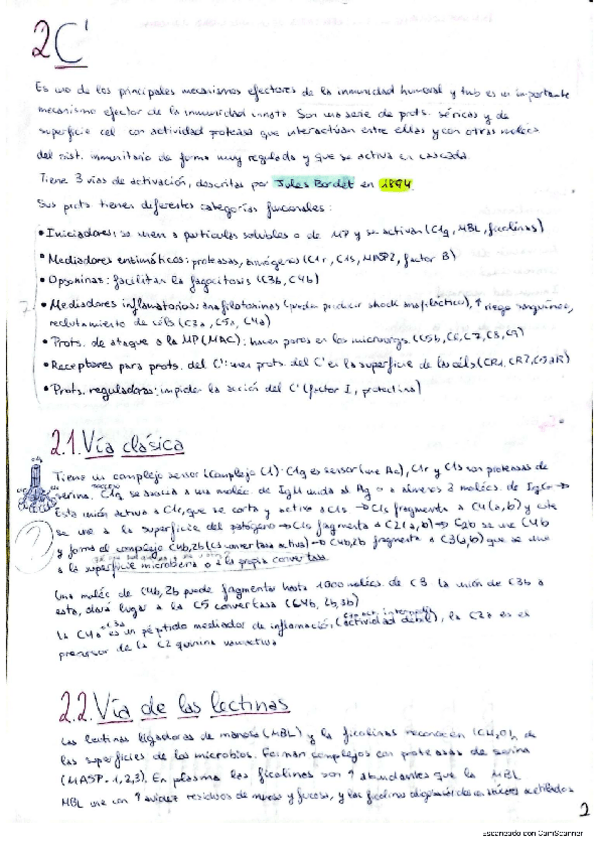 2C'
Es uno de los principales mecanismos efectores de la inmunidad humoral y tmb es un importante
mecanismo efector de la inmunidad innata. Son una serie de prots. séricas y de
superficie cel con actividad proteasa que interactúan entre ellas y con otras molécs
del sist. inmunitario de forma muy regulada y que se activa en cascada.
Tiene 3 vías de activación, descritas por Jules Bordet en 1894.
Sus prots tienen diferentes categorías funcionales:
• Iniciadores: se unen a partículas solubles o de MP y se activan (C1q, MBL, ficolinas)
• Mediadores enzimáticos: proteasas, zimógenos (C1r, C1s, MASP2, factor B)
• Opsoninas: facilitan la fagocitosis (C3b, C4b)
• Mediadores inflamatorios: anafilotoxinas (pueden producir shock anafiláctico), ↑ riego sanguíneo,
reclutamiento de céls (C3a, C5a, C4a)
• Prots. de ataque a la MP (MAC): hacen poros en los microorgs. (C5b, C6, C7, C8, C9)
• Receptores para prots. del C': unen prots. del C' en la superficie de las céls (CR1, CR2,
• Prots. reguladoras: impiden la acción del C' (factor I, protectina)
2.1. Vía clásica
Tiene un complejo sensor (complejo C1): C1q es sensor (une Ac), C1r y C1s son proteasas de
serina. C1q se asocia a una moléc de IgM unida al Ag o a 2 molécs. de IgG →
Esta unión activa a C1r, que se corta y activa a C1s → C1s fragmenta a C4 (a, b) y este
se une a la superficie del patógeno → C1s fragmenta a C2 (a, b) → C2b se une C4b
y forma el complejo C4b,2b (C3 convertasa activa) → C4b,2b fragmenta a C3 (a, b) que se une
a la superficie microbiana o a la propia convertasa
Una moléc de C4b,2b puede fragmentar hasta 1000 molécs. de C3. La unión de C3b a
esta, dará lugar a la C5 convertasa (C4b, 2b, 3b)
La C4a es un péptido mediador de inflamación (actividad débil), la C2a es el
precursor de la C2 quinina vasoactiva
2.2. Vía de las lectinas
Las lectinas ligadoras de manosa (MBL) y la ficolinas reconocen (CH2O)n de
las superficies de los microbios. Forman complejos con proteasas de serina
(MASP-1,2,3). En plasma las ficolinas son ↑ abundantes que la MBL
MBL une con ↑ avidez residuos de manosa y fucosa, y las ficolinas
2
Escaneado con CamScanner